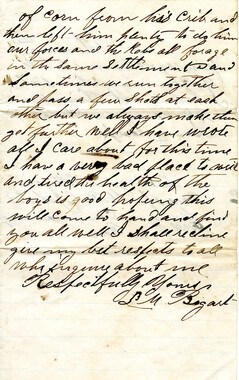 of corn from his Crib and
then left him plenty to do him
our forces and the Rebs all forage
in the same Settlements and
sometimes we run together
and pass a few shots at each
other but we always make them
get further Well I have wrote
all I care about for this time
I have a very bad place to write
and tired the health of the
boys is good hoping this
will come to hand and find
you all well I shall
give my best respects to all
who Enquire about me
Respectfully Yours
Bogart